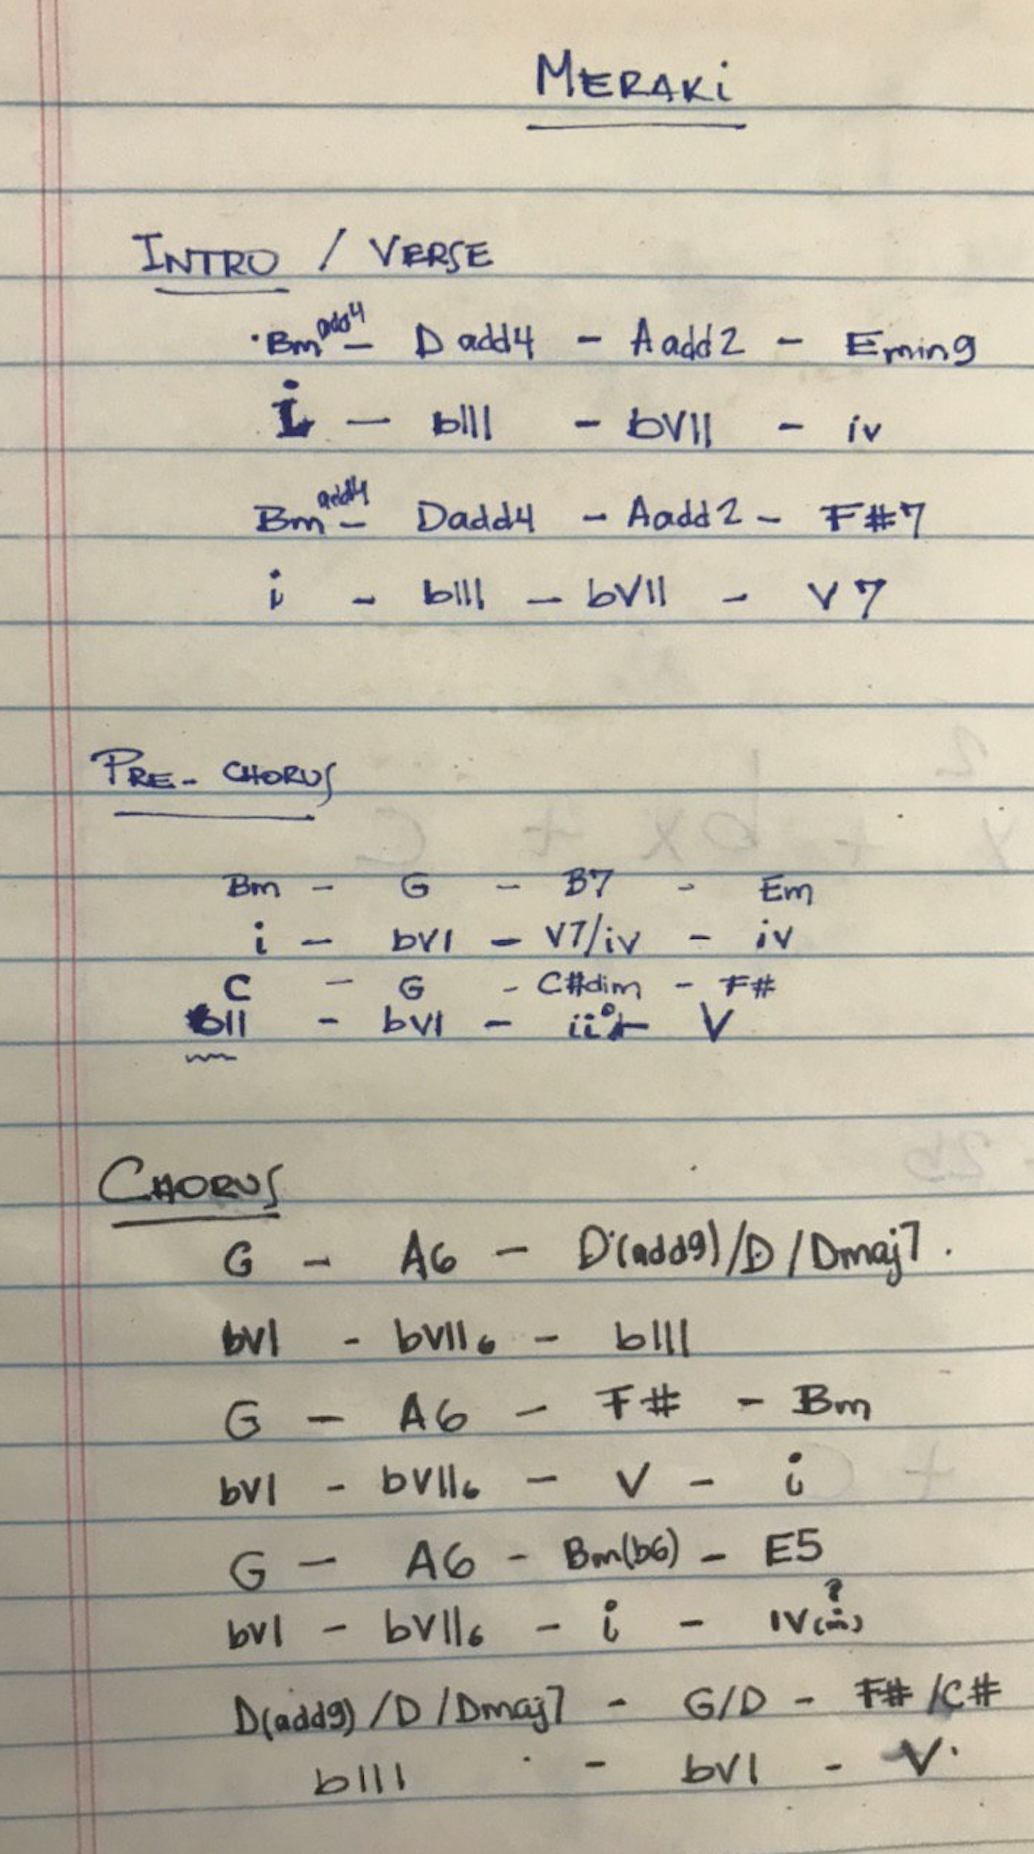 MERAKi
INTRO / VERSE
Bm add4 - D add4 - A add2 - Emin9
i - bIII - bVII - iv
Bm add4 - Dadd4 - Aadd2 - F#7
i - bIII - bVII - V7
PRE-CHORUS
Bm - G - B7 - Em
i - bVI - V7/iv - iv
C - G - C#dim - F#
bII - bVI - ii° - V
CHORUS
G - A6 - D(add9)/D/Dmaj7.
bVI - bVII6 - bIII
G - A6 - F# - Bm
bVI - bVII6 - V - i
G - A6 - Bm(b6) - E5
bVI - bVII6 - i - IV(m)?
D(add9)/D/Dmaj7 - G/D - F#/C#
bIII - bVI - V